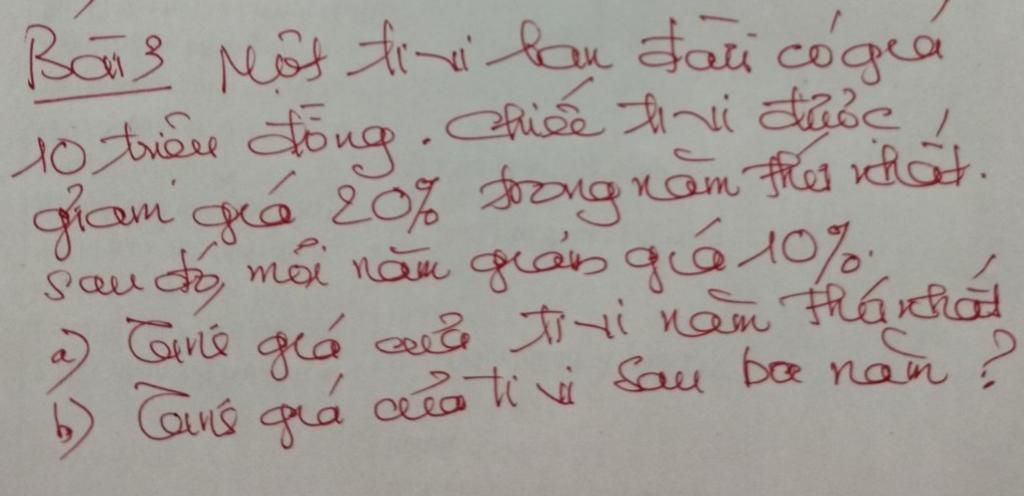 Bài 3 Một ti-vi ban đầu có giá
10 triệu đồng. Chiếc ti-vi được
giảm giá 20% trong năm thứ nhất.
sau đó, mỗi năm giảm giá 10%.
a) Tính giá của ti-vi năm thứ nhất
b) Tính giá của ti vi sau ba năm ?